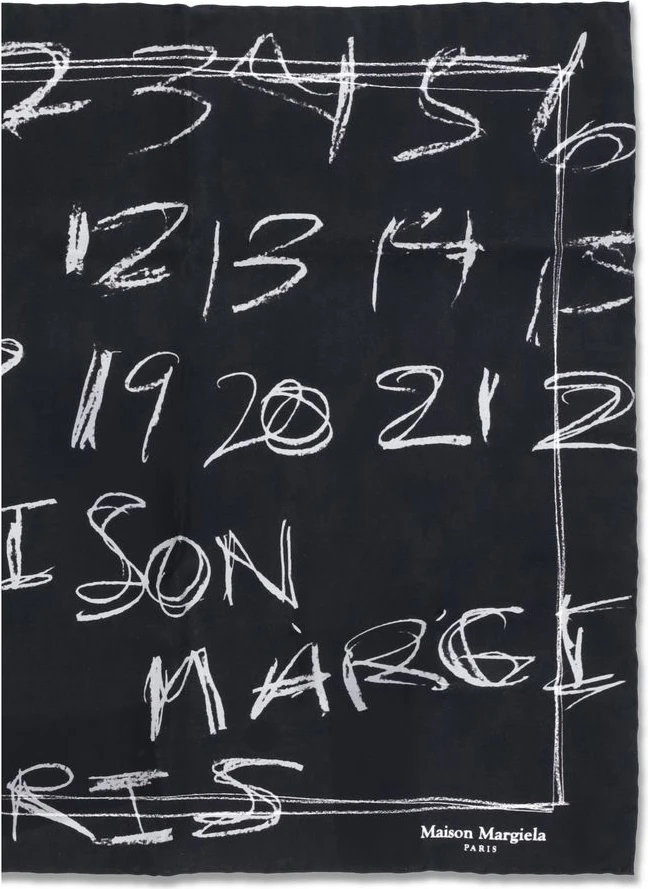 2 3 4 5 6
12 13 14 15
19 20 21 2
ISON
MARGI
RIS
Maison Margiela
PARIS